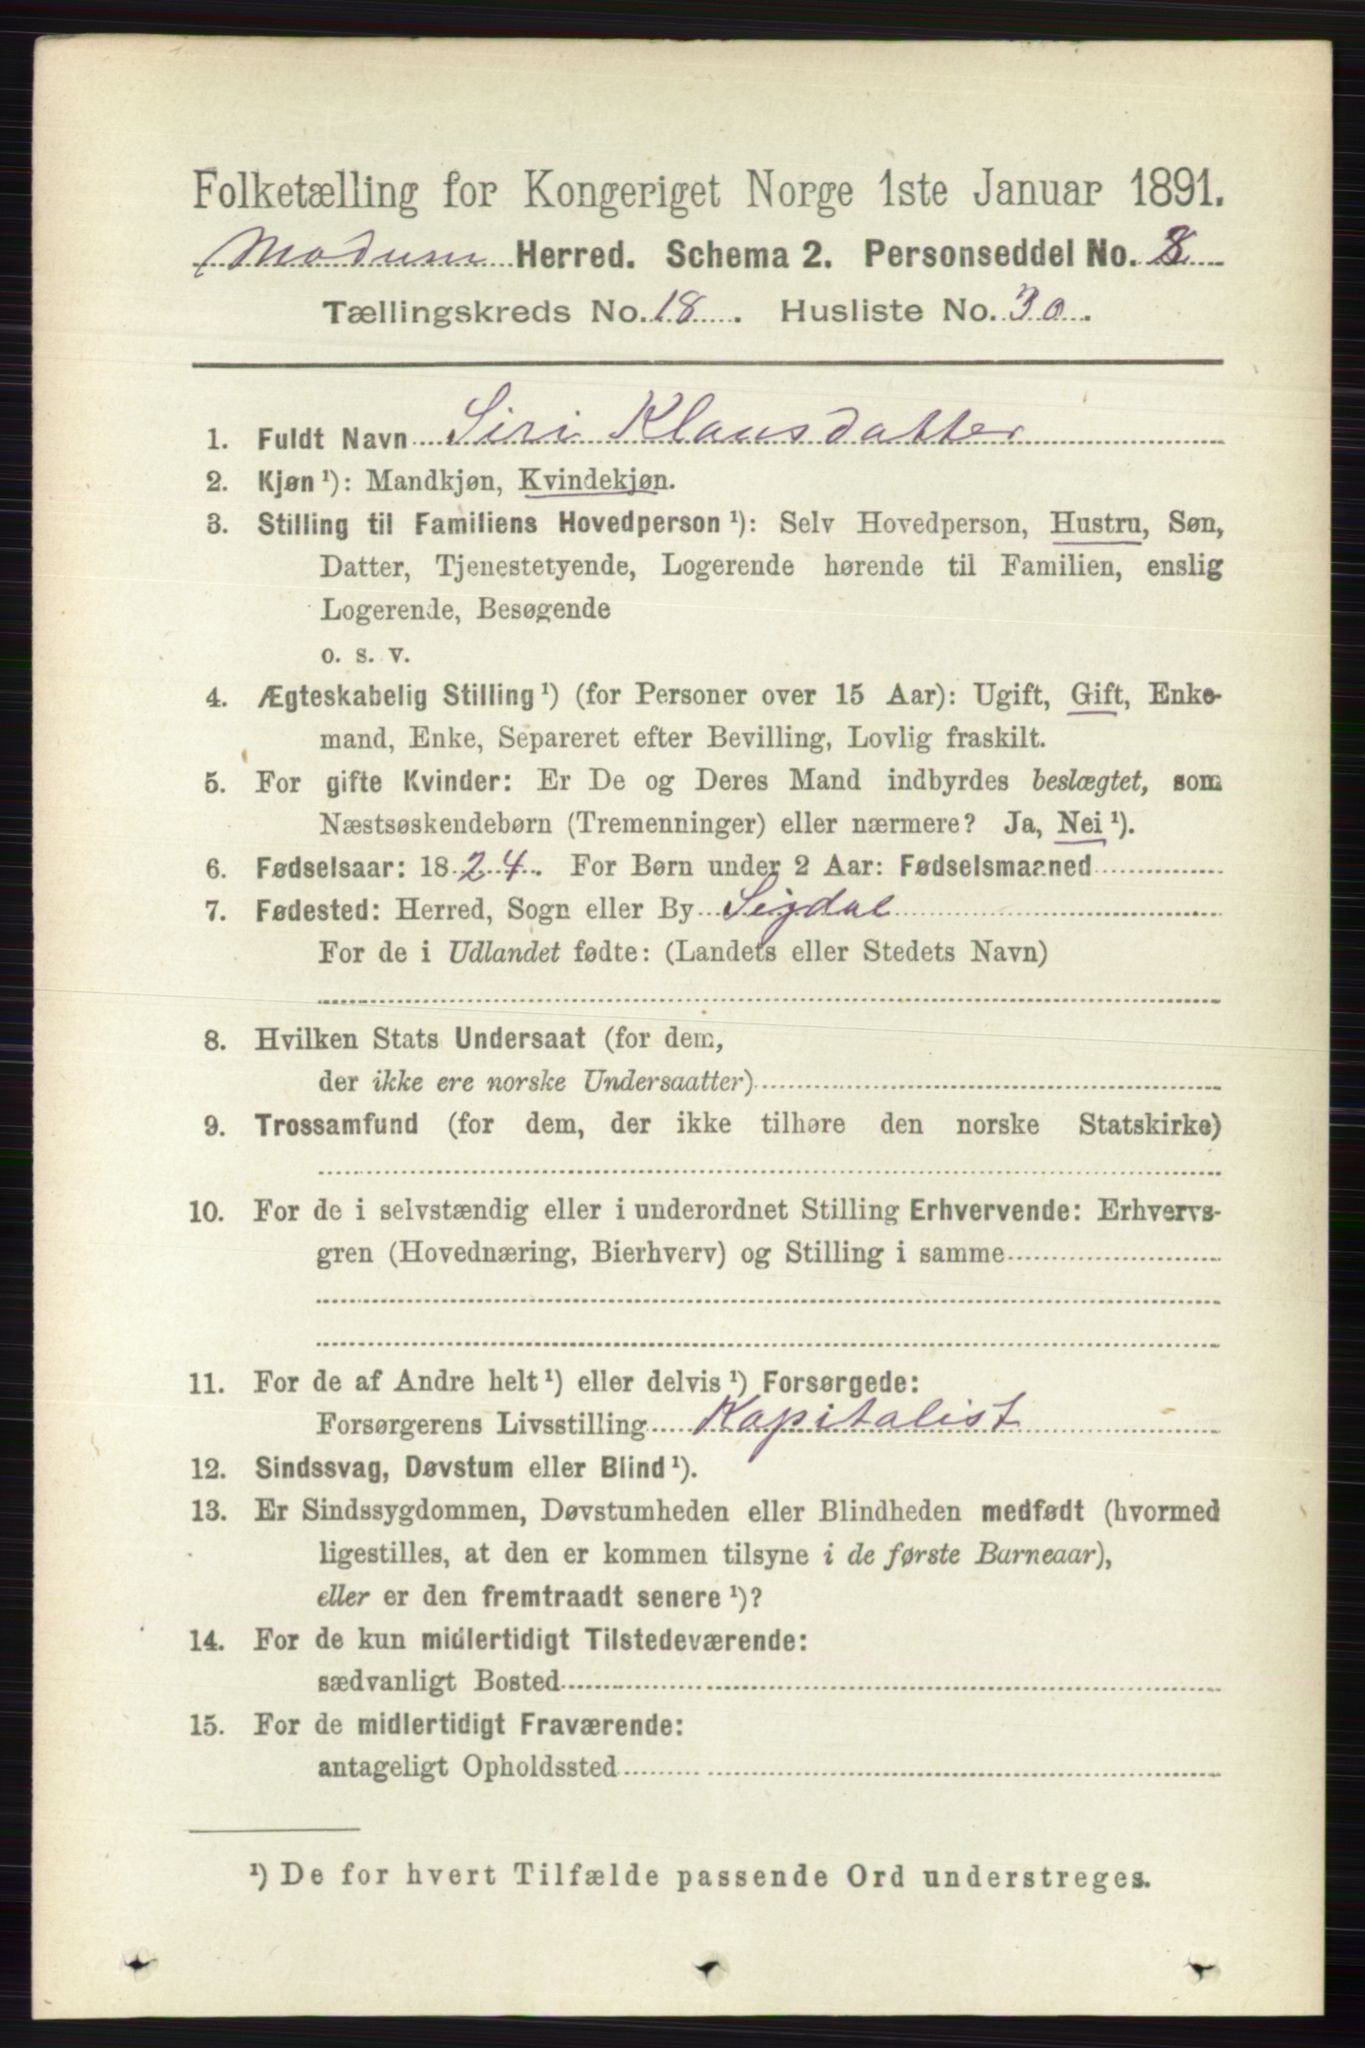 Folketælling for Kongeriget Norge 1ste Januar 1891.
Modum Herred. Schema 2. Personseddel No.
Tællingskreds No. 18. Husliste No. 30.
1. Fuldt Navn Siri Klausdatter
2. Kjøn ¹): Mandkjøn, Kvindekjøn.
3. Stilling til Familiens Hovedperson ¹): Selv Hovedperson, Hustru, Søn,
Datter, Tjenestetyende, Logerende hørende til Familien, enslig
Logerende, Besøgende
o. s. v.
4. Ægteskabelig Stilling ¹) (for Personer over 15 Aar): Ugift, Gift, Enke-
mand, Enke, Separeret efter Bevilling, Lovlig fraskilt.
5. For gifte Kvinder: Er De og Deres Mand indbyrdes beslægtet, som
Næstsøskendebørn (Tremenninger) eller nærmere? Ja, Nei ¹).
6. Fødselsaar: 1824. For Børn under 2 Aar: Fødselsmaaned
7. Fødested: Herred, Sogn eller By Sigdal
For de i Udlandet fødte: (Landets eller Stedets Navn)
8. Hvilken Stats Undersaat (for dem,
der ikke ere norske Undersaatter)
9. Trossamfund (for dem, der ikke tilhøre den norske Statskirke)
10. For de i selvstændig eller i underordnet Stilling Erhvervende: Erhvervs-
gren (Hovednæring, Bierhverv) og Stilling i samme
11. For de af Andre helt ¹) eller delvis ¹) Forsørgede:
Forsørgerens Livsstilling Kapitalist
12. Sindssvag, Døvstum eller Blind ¹).
13. Er Sindssygdommen, Døvstumheden eller Blindheden medfødt (hvormed
ligestilles, at den er kommen tilsyne i de første Barneaar),
eller er den fremtraadt senere ¹)?
14. For de kun midlertidigt Tilstedeværende:
sædvanligt Bosted
15. For de midlertidigt Fraværende:
antageligt Opholdssted
¹) De for hvert Tilfælde passende Ord understreges.